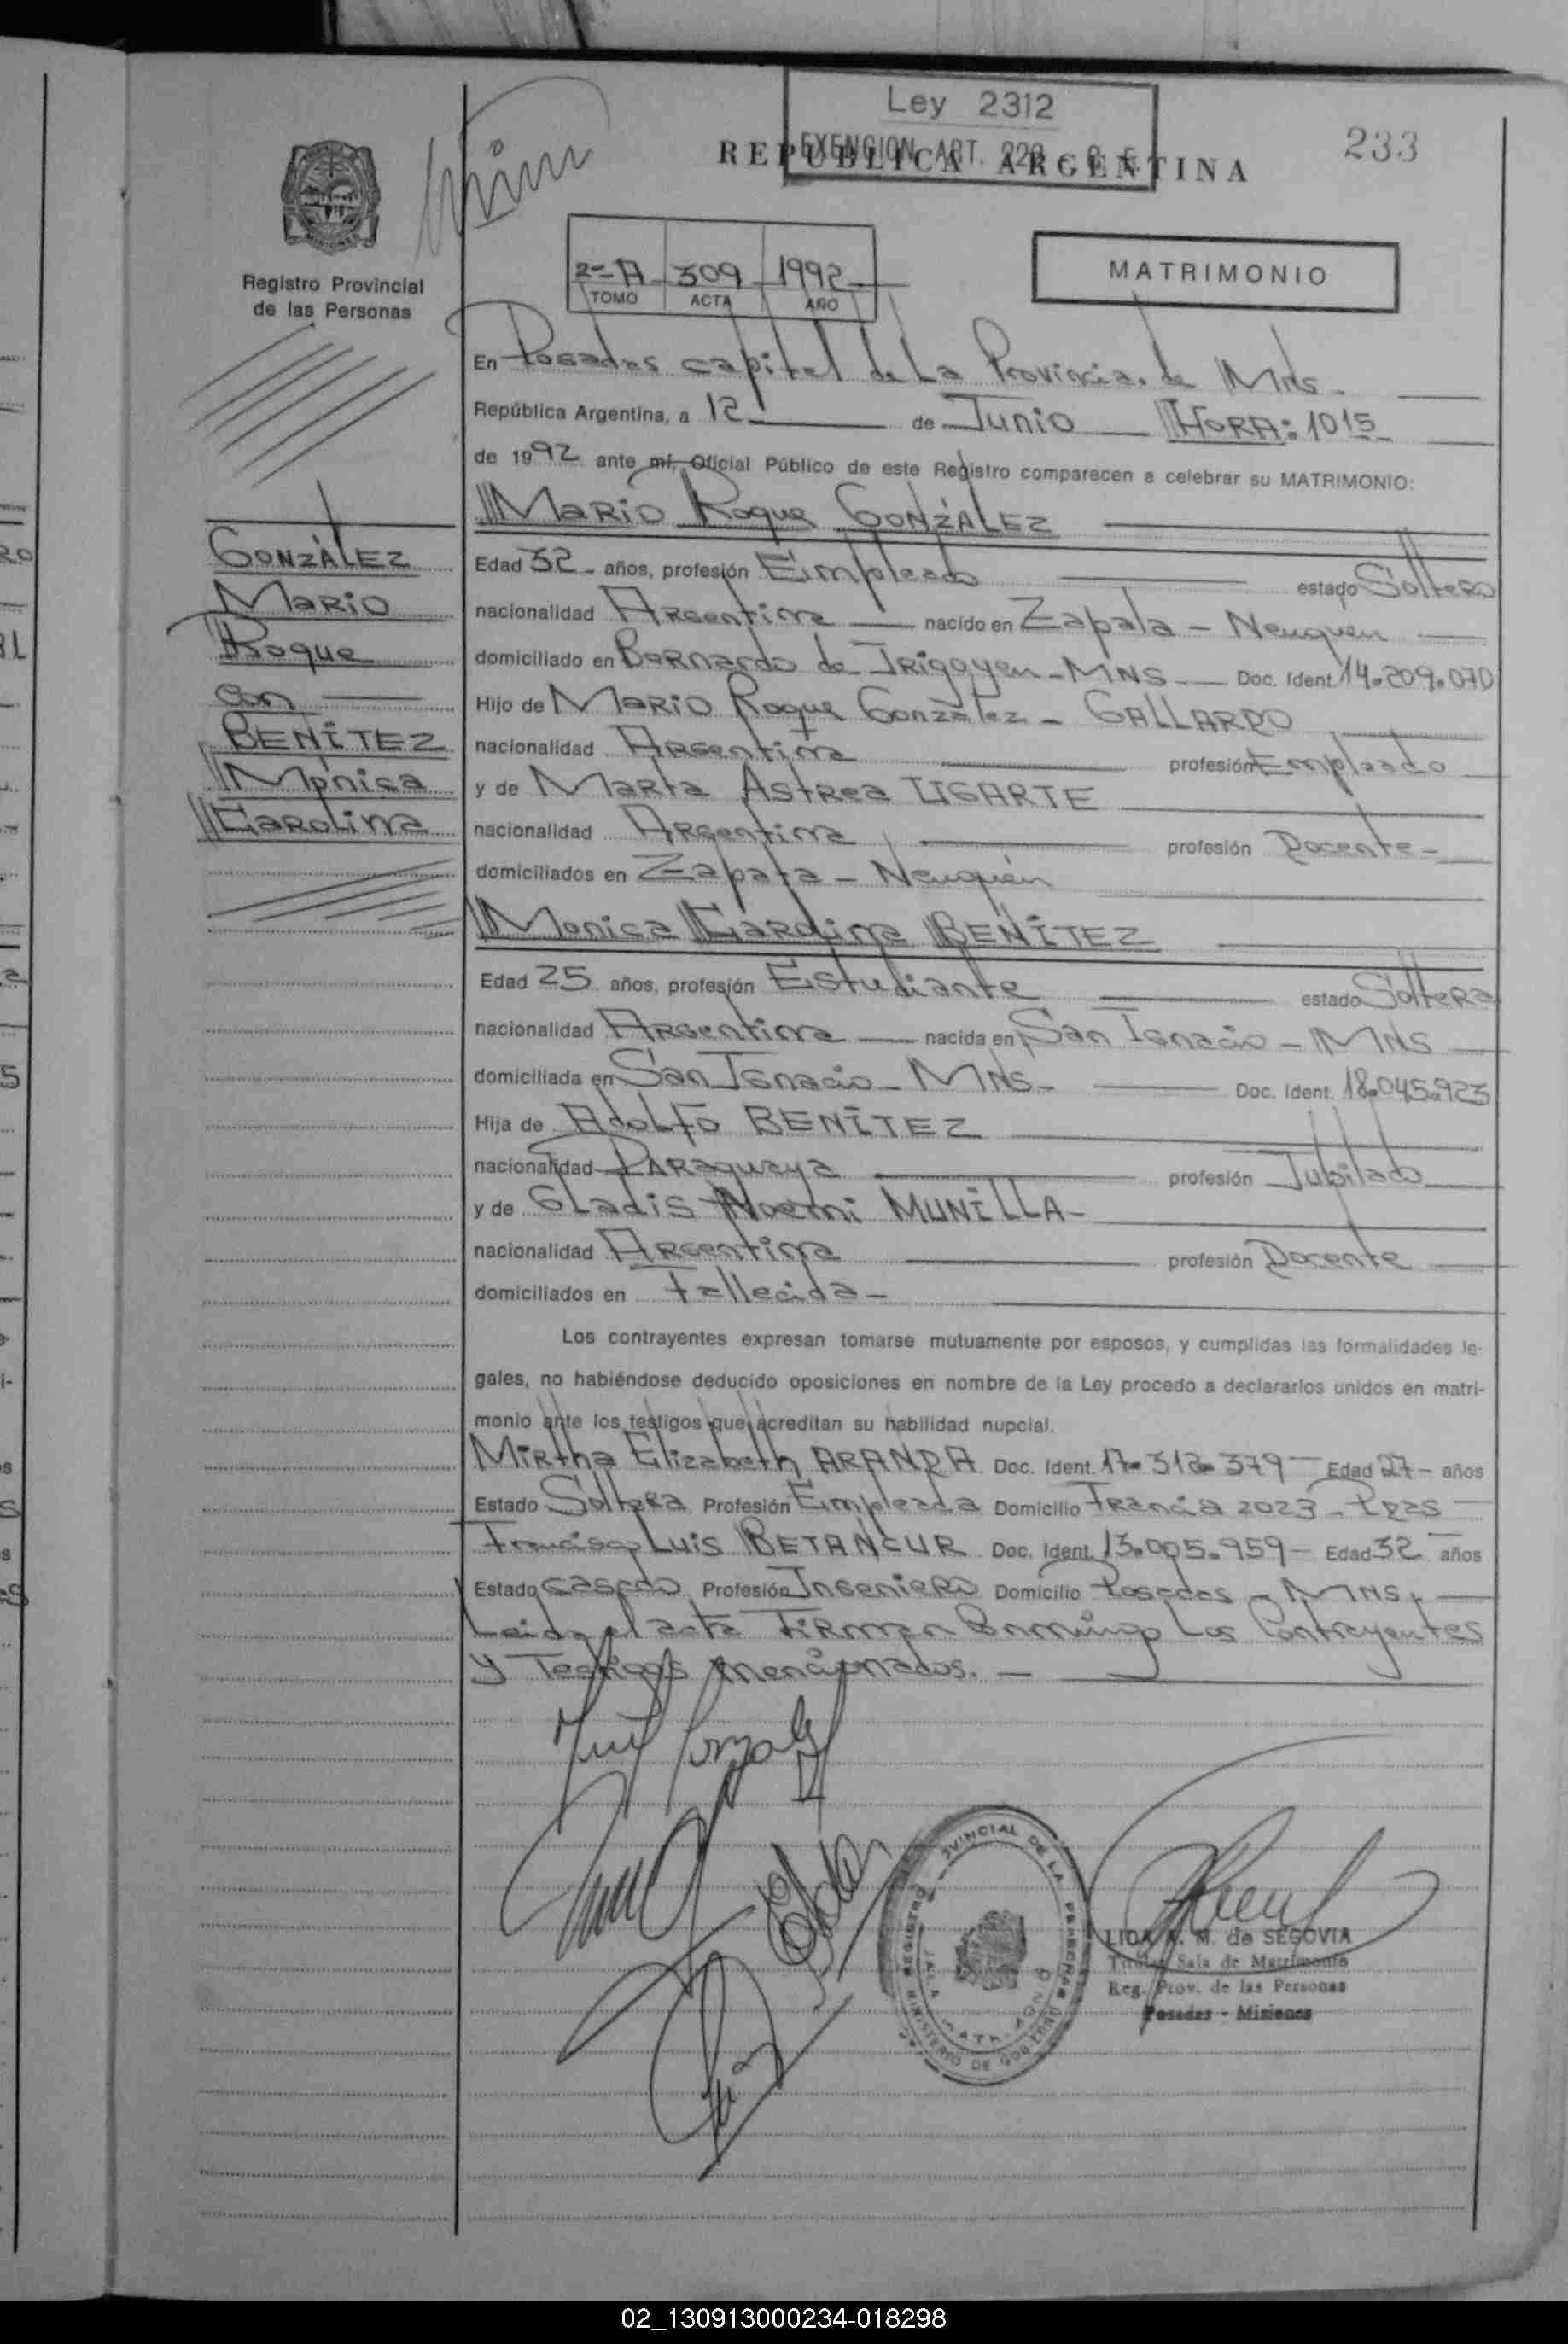 Ley 2312
EXENCION ART. 229 - C. F.
REPUBLICA ARGENTINA
233
Registro Provincial
de las Personas
2º-A 309 1992
TOMO ACTA AÑO
MATRIMONIO
En Posadas capital de La Provincia de Mns.
República Argentina, a 12 de Junio HORA: 1015
de 1992 ante mí, Oficial Público de este Registro comparecen a celebrar su MATRIMONIO:
Mario Roque GONZÁLEZ
GONZÁLEZ
Mario
Roque
con
BENÍTEZ
Mónica
Carolina
Edad 32 años, profesión Empleado estado Soltero
nacionalidad Argentina nacido en Zapala - Neuquen
domiciliado en Bernardo de Irigoyen - MNS Doc. Ident. 14.209.070
Hijo de Mario Roque González - GALLARDO
nacionalidad Argentina profesión Empleado
y de Marta Astrea UGARTE
nacionalidad Argentina profesión Docente
domiciliados en Zapala - Neuquén
Monica Carolina BENÍTEZ
Edad 25 años, profesión Estudiante estado Soltera
nacionalidad Argentina nacida en San Ignacio - MNS
domiciliada en San Ignacio - MNS - Doc. Ident. 18.045.923
Hija de Adolfo BENÍTEZ
nacionalidad Paraguaya profesión Jubilado
y de Gladis Noemi MUNILLA -
nacionalidad Argentina profesión Docente
domiciliados en fallecida -
Los contrayentes expresan tomarse mutuamente por esposos, y cumplidas las formalidades le-
gales, no habiéndose deducido oposiciones en nombre de la Ley procedo a declararlos unidos en matri-
monio ante los testigos que acreditan su habilidad nupcial.
Mirtha Elizabeth ARANDA Doc. Ident. 17.312.379 Edad 27 - años
Estado Soltera Profesión Empleada Domicilio Francia 2023 - Pdas
Francisco Luis BETANCUR Doc. Ident. 13.005.959 - Edad 32 años
Estado casado Profesión Ingeniero Domicilio Posadas - MNS.
Leida el acta Firman Conmigo Los Contrayentes
y Testigos mencionados. -
LIDA A. M. de SEGOVIA
Titular Sala de Matrimonio
Reg. Prov. de las Personas
Posadas - Misiones
02_130913000234-018298